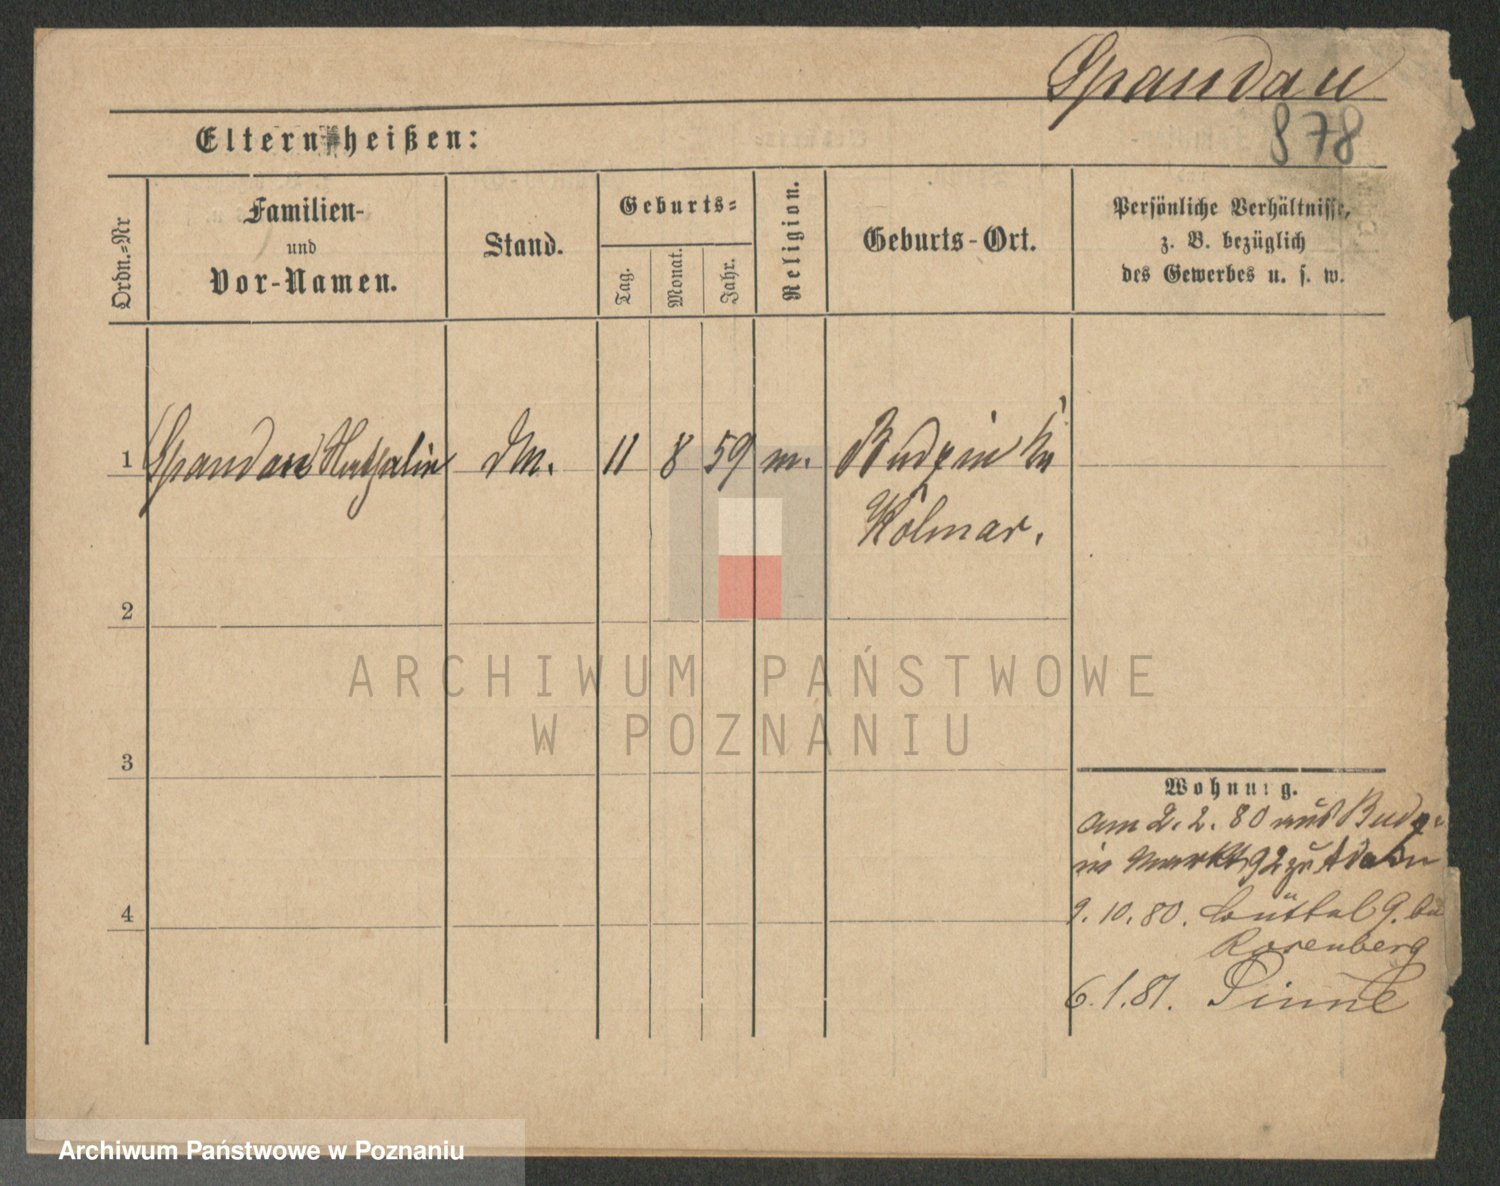 Spandau
878
Eltern heißen:
Ordn.=Nr
Familien-
und
Vor-Namen.
Stand.
Geburts=
Tag.
Monat.
Jahr.
Religion.
Geburts-Ort.
Persönliche Verhältnisse,
z. B. bezüglich
des Gewerbes u. s. w.
1
Spandau
11
8
59
m.
Budzin
Kolmar.
2
ARCHIWUM PAŃSTWOWE
W POZNANIU
3
Wohnung.
am 2. 2. 80 aus Budz-
in Markt 92 zu
9. 10. 80. 9. bei
Rosenberg
6. 1. 81. Pinne
4
Archiwum Państwowe w Poznaniu